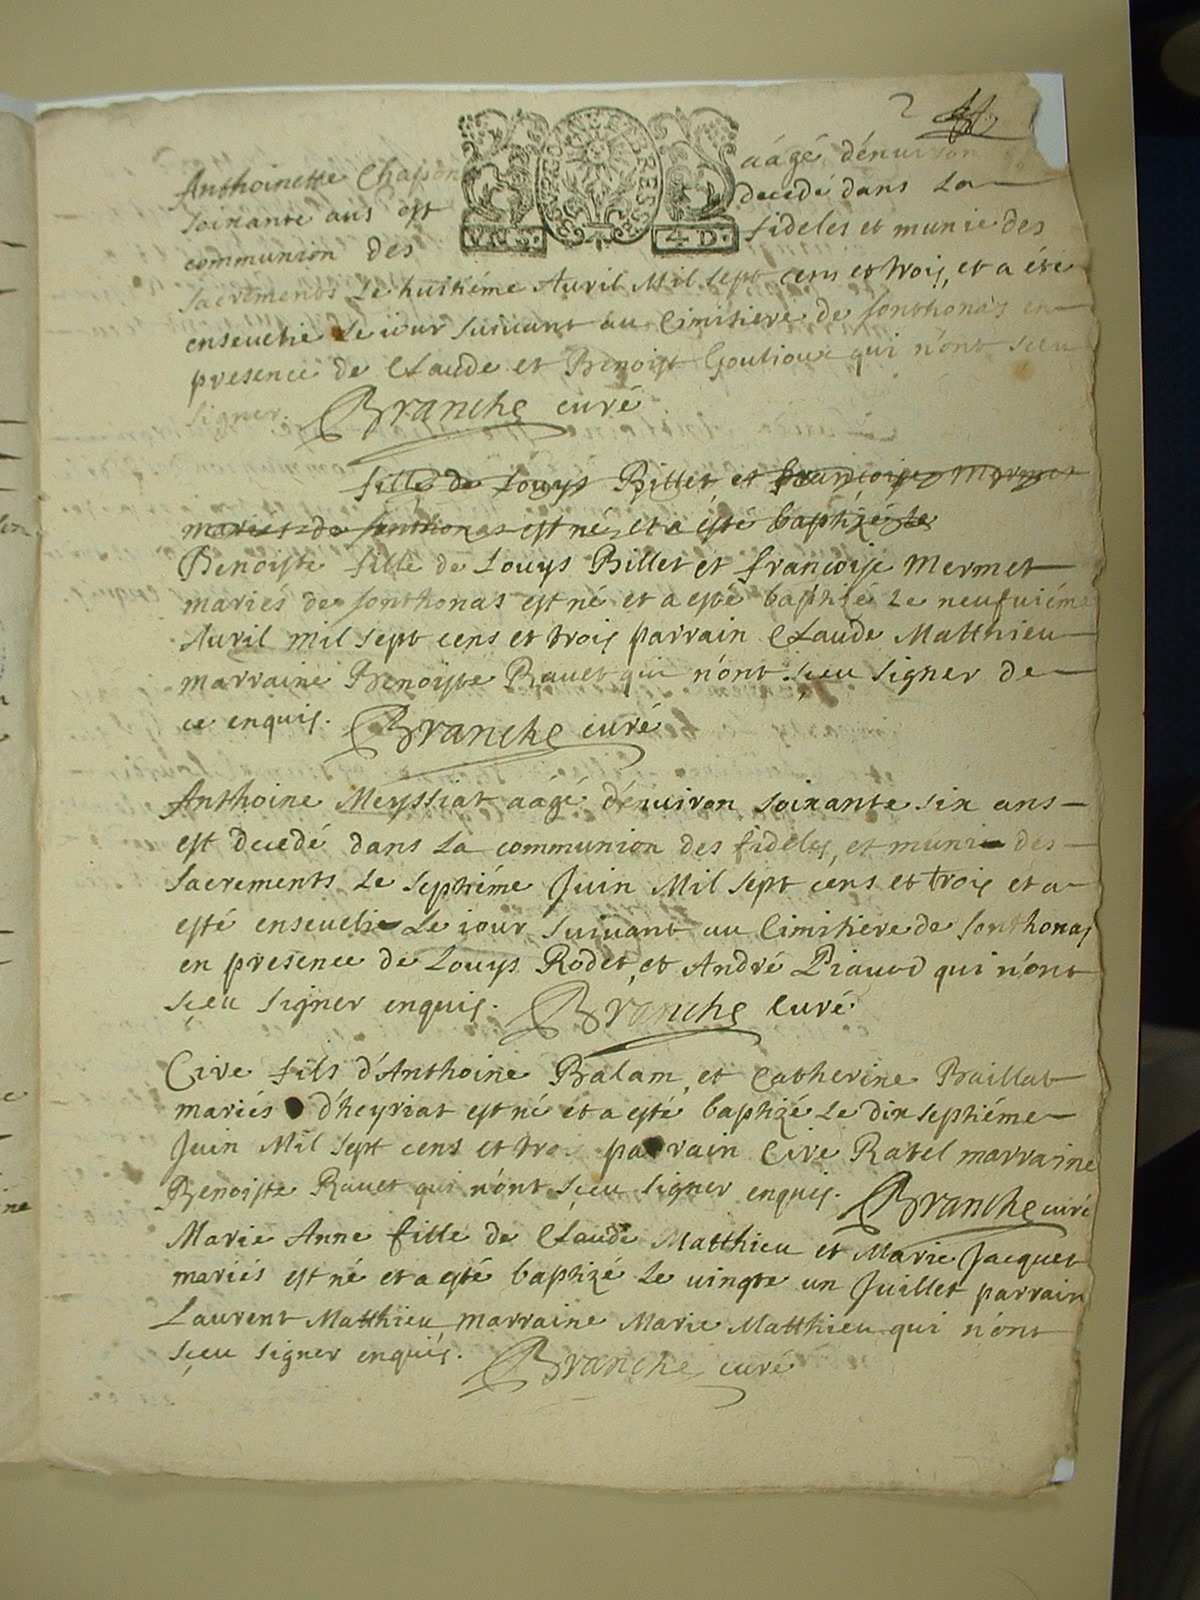 2
Anthoinette Chapon aagé d'enuiron
soixante ans est decedé dans La
communion des fideles et munie des
VN S. 4 D.
sacrements Le huitiéme Auril Mil sept cens et trois, et a éte
enseuelie Le iour suiuant au Cimitiere de sonthonas en
presence de Claude et Benoist Goutioux qui n'ont sceu
signer. Branche curé
fille de Louys Billet et francoise Mermet
mariés de sonthonas est né et a esté baptizé Le
Benoiste fille de Louys Billet et francoise Mermet
mariés de sonthonas est né et a esté baptizé Le neufuiéme
Auril mil sept cens et trois parrain Claude Matthieu
marraine Benoiste Rauet qui n'ont sçeu signer de
ce enquis. Branche curé
Anthoine Meyssiat aâgé d'enuiron soixante six ans
est decedé dans La communion des fideles, et muni des
sacrements Le septiéme Juin Mil sept cens et trois et a
esté enseueli Le iour suiuant au Cimitiere de sonthonas
en presence de Louys Rodet, et André Piaud qui n'ont
sçeu signer enquis. Branche Curé
Cire fils d'Anthoine Balam, et Catherine Baillat
mariés d'heyriat est né et a esté baptizé Le dix septiéme
Juin Mil sept cens et tro parrain Cire Ratel marraine
Benoiste Rauet qui n'ont sçeu signer enquis. Branche curé
Marie Anne fille de Claude Matthieu et Marie Jacquet
mariés est né et a esté baptizé Le uingte un Juillet parrain
Laurent Matthieu marraine Marie Matthieu qui n'ont
sçeu signer enquis. Branche curé